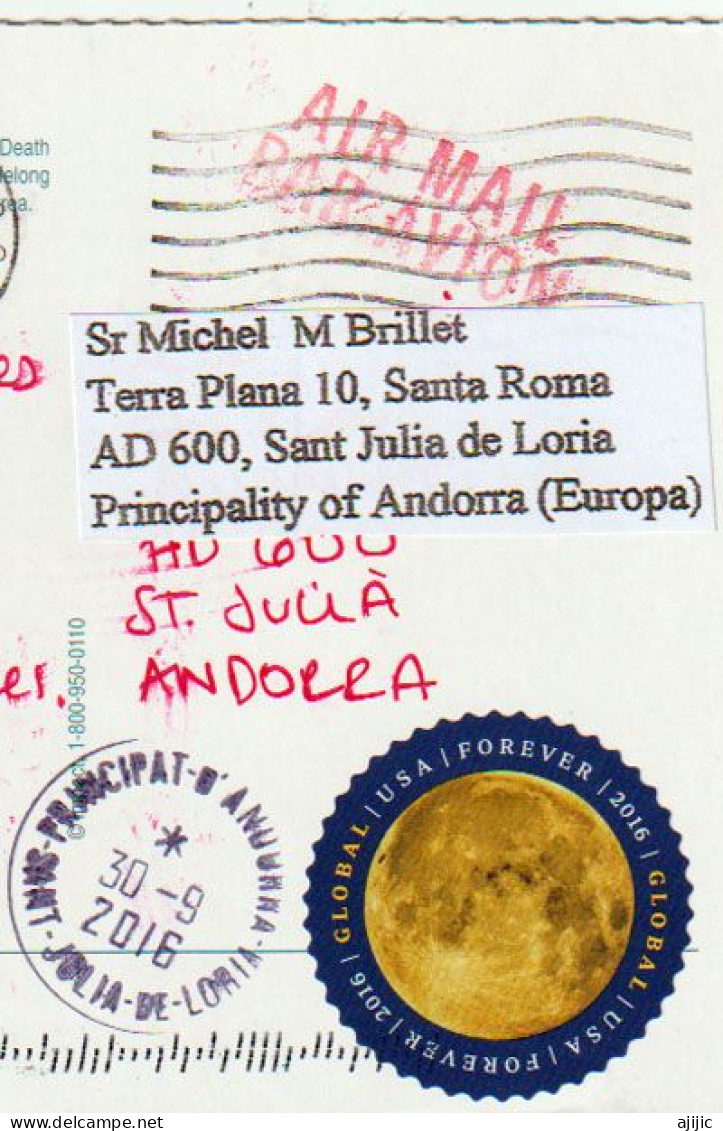 Death
elong
rea.
AIR MAIL
PAR AVION
es
Sr Michel M Brillet
Terra Plana 10, Santa Roma
AD 600, Sant Julia de Loria
Principality of Andorra (Europa)
AD 600
ST. JULIÀ
er. ANDORRA
1-800-950-0110
PRINCIPAT-D'ANDORRA-
*
30-9
2016
SANT-JULIA-DE-LORIA
GLOBAL | USA | FOREVER | 2016 | GLOBAL | USA | FOREVER | 2016 |
ajijic